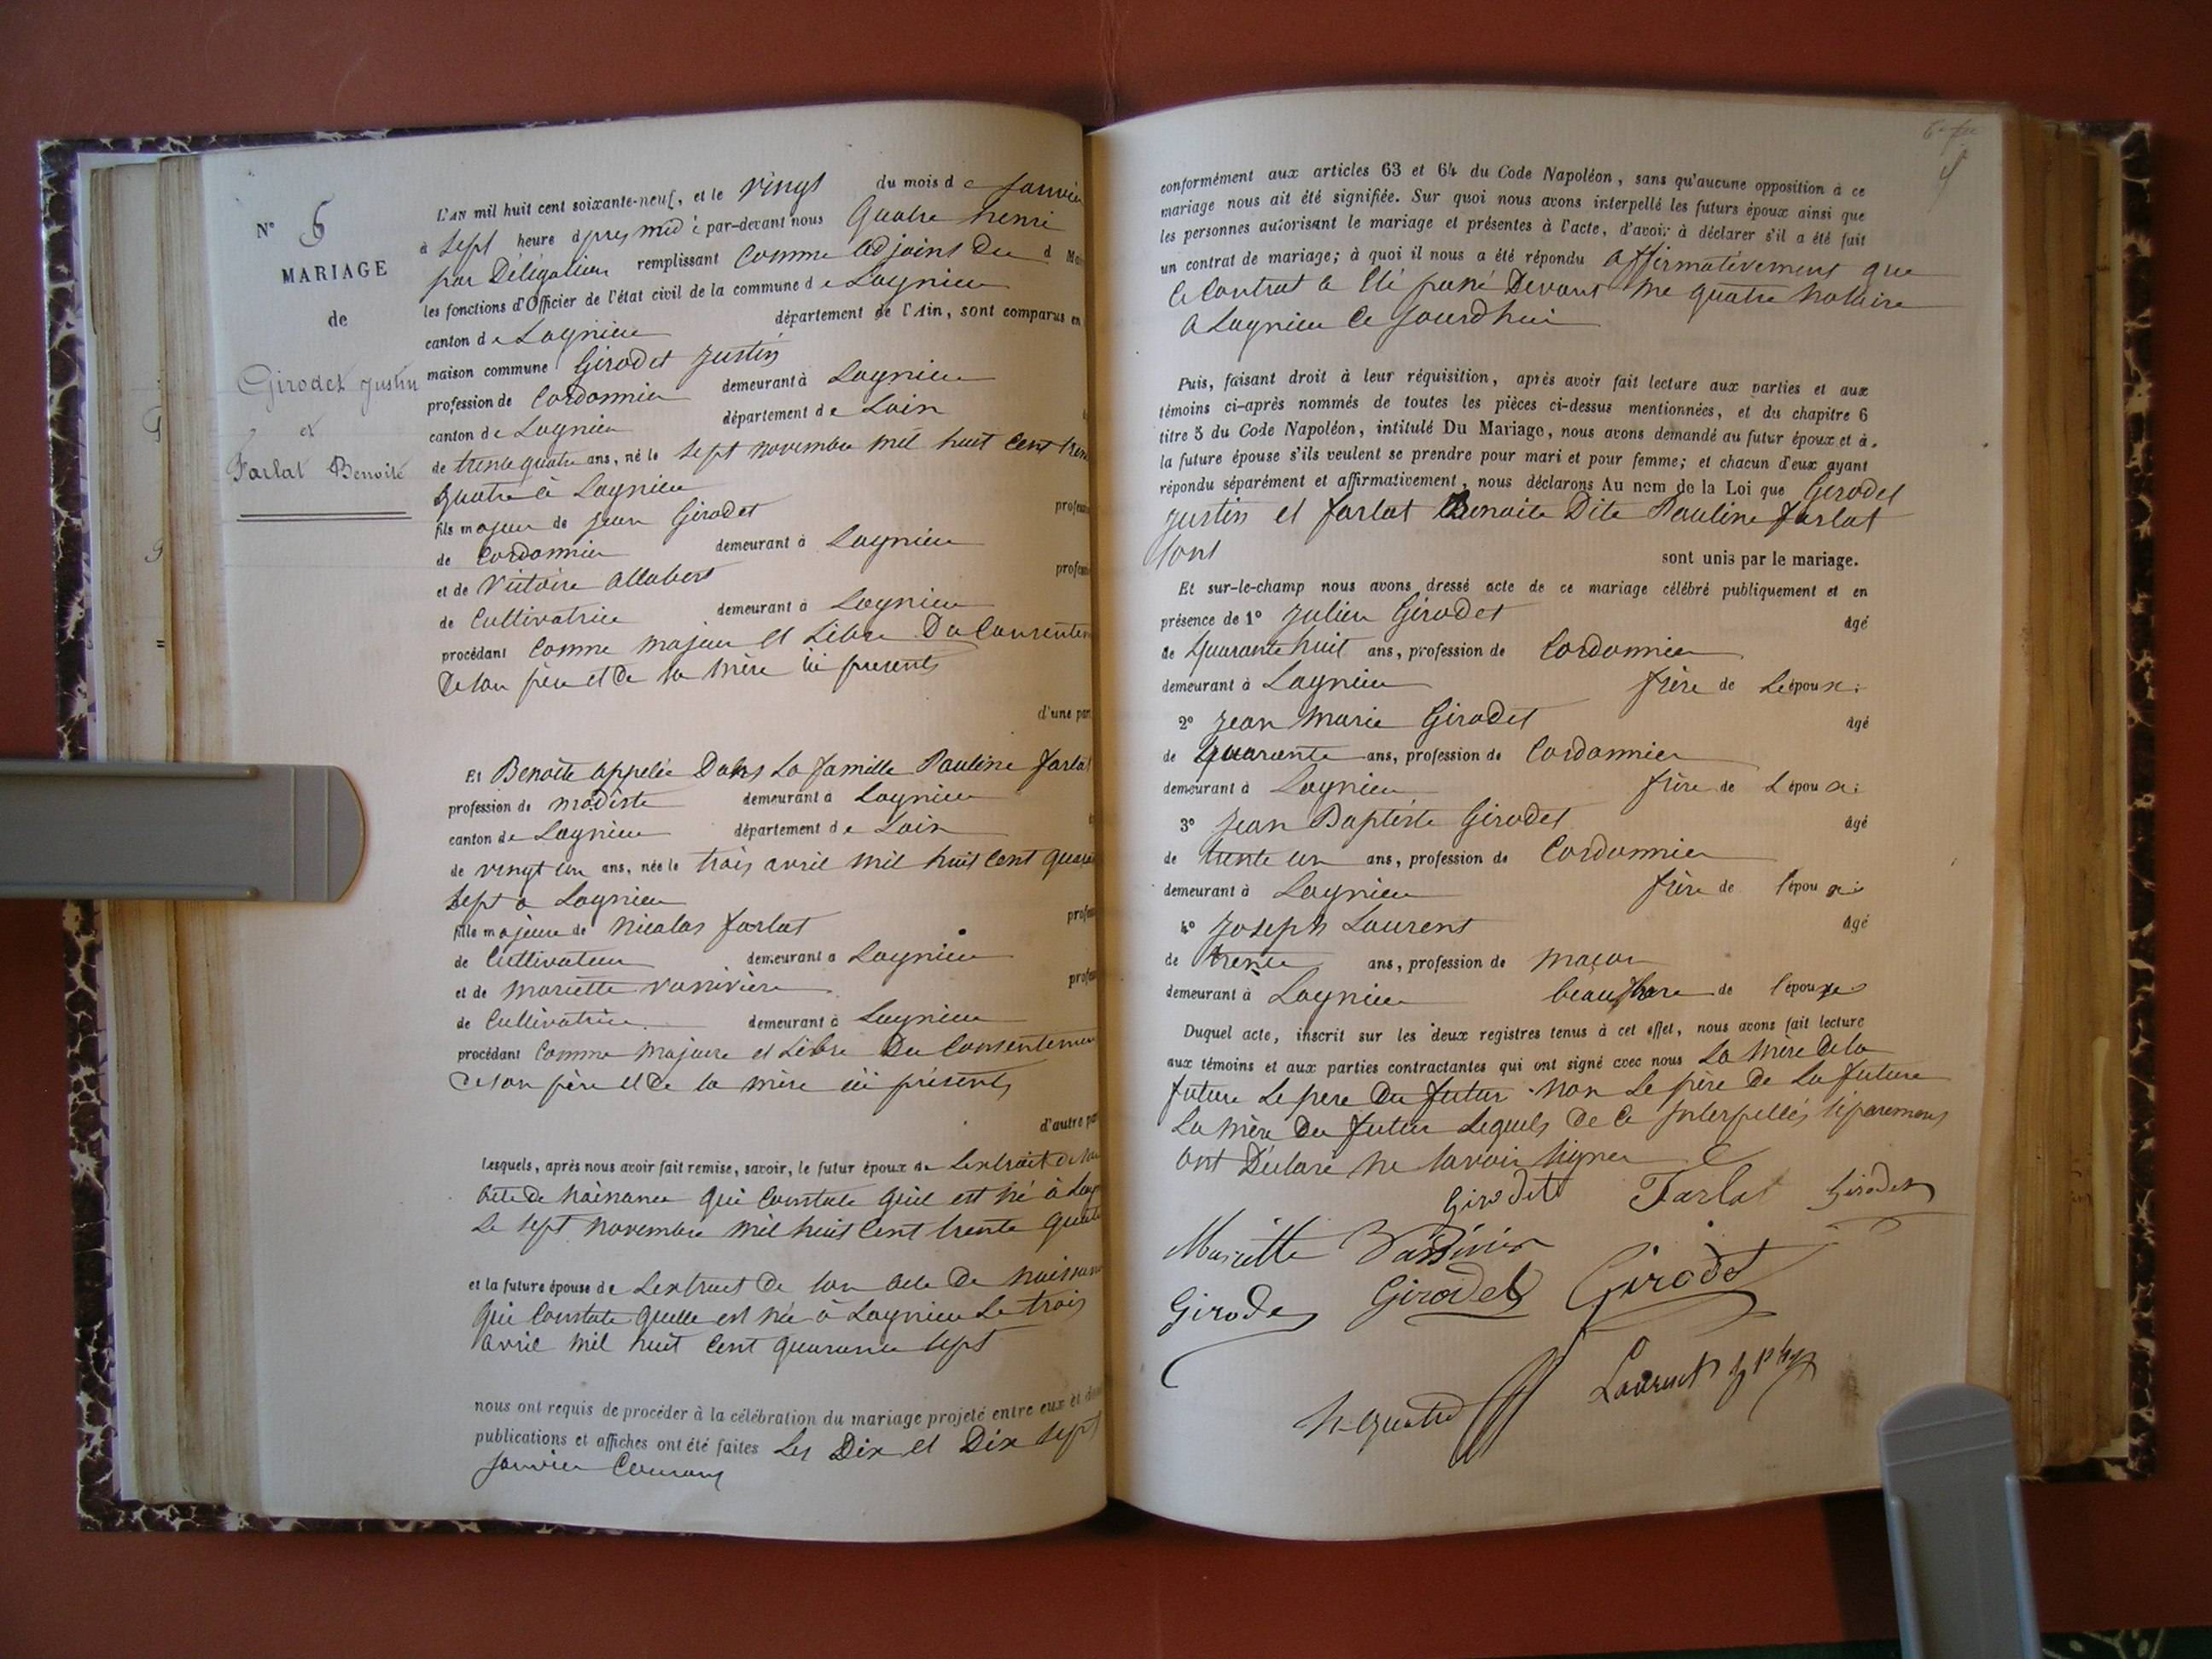 N° 6
MARIAGE
de
Girodet Justin
et
Farlat Benoite
L'AN mil huit cent soixante-neuf, et le vingt du mois de Janvier
à sept heure après midi par-devant nous Quatre henri
par Délégation remplissant Comme adjoint Du d Mai
les fonctions d'Officier de l'état civil de la commune de Lagnieu
canton de Lagnieu département de l'Ain, sont comparus en
maison commune Girodet Justin
profession de Cordonnier demeurant à Lagnieu
canton de Lagnieu département de Lain
de trente quatre ans, né le sept novembre mil huit cent tren
quatre à Lagnieu
fils majeur de Jean Girodet profess
de Cordonnier demeurant à Lagnieu
et de Victoire allabert profess
de Cultivatrice demeurant à Lagnieu
procédant Comme majeur et Libre Du Consentem
De son père et De sa mère ici presents
d'une part
Et Benoite appelée Dans La famille Pauline farlat
profession de modiste demeurant à Lagnieu
canton de Lagnieu département de Lain
de vingt un ans, née le trois avril mil huit cent quaran
sept a Lagnieu
fille majeure de Nicolas farlat profess
de Cultivateur demeurant a Lagnieu
et de mariette vanivière profess
de Cultivatrice demeurant à Lagnieu
procédant Comme majeure et Libre Du Consentemen
De son père et De sa mère ici présents
d'autre par
Lesquels, après nous avoir fait remise, savoir, le futur époux de Lextrait de son
acte de naissance qui Constate quil est né à Lag
Le sept novembre mil huit cent trente quatr
et la future épouse de Lextrait De son acte De naissan
qui Constate quelle est née à Lagnieu Le trois
avril mil huit cent quarante sept
nous ont requis de procéder à la célébration du mariage projeté entre eux et do
publications et affiches ont été faites Les Dix et Dix sept
Janvier Courant
conformément aux articles 63 et 64 du Code Napoléon, sans qu'aucune opposition à ce
mariage nous ait été signifiée. Sur quoi nous avons interpellé les futurs époux ainsi que
les personnes autorisant le mariage et présentes à l'acte, d'avoir à déclarer s'il a été fait
un contrat de mariage; à quoi il nous a été répondu affirmativement que
Le Contrat a été passé Devant me quatre notaire
a Lagnieu Ce jourd'hui
Puis, faisant droit à leur réquisition, après avoir fait lecture aux parties et aux
témoins ci-après nommés de toutes les pièces ci-dessus mentionnées, et du chapitre 6
titre 5 du Code Napoléon, intitulé Du Mariage, nous avons demandé au futur époux et à
la future épouse s'ils veulent se prendre pour mari et pour femme; et chacun d'eux ayant
répondu séparément et affirmativement, nous déclarons Au nom de la Loi que Girodet
Justin et farlat Benoite Dite Pauline farlat
sont sont unis par le mariage.
Et sur-le-champ nous avons dressé acte de ce mariage célébré publiquement et en
présence de 1° Julien Girodet âgé
de Quarante huit ans, profession de Cordonnier
demeurant à Lagnieu frère de L'époux;
2° Jean Marie Girodet âgé
de Quarante ans, profession de Cordonnier
demeurant à Lagnieu frère de L'époux;
3° Jean Baptiste Girodet âgé
de trente un ans, profession de Cordonnier
demeurant à Lagnieu frère de l'époux;
4° Joseph Laurent âgé
de trente ans, profession de maçon
demeurant à Lagnieu beau frère de l'épouxe
Duquel acte, inscrit sur les deux registres tenus à cet effet, nous avons fait lecture
aux témoins et aux parties contractantes qui ont signé avec nous La mère De la
future Le pere Du futur non Le père De La future
La mère Du futur Lequels De Ce Interpellés séparement
ont Déclaré ne savoir signer
Girodet Farlat Girodet
Mariette Vanivier
Girodet Girodet Girodet
h. quatre Laurent